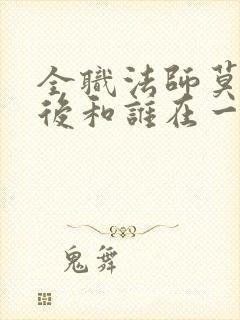 全職法師莫
後和誰在一
鬼舞